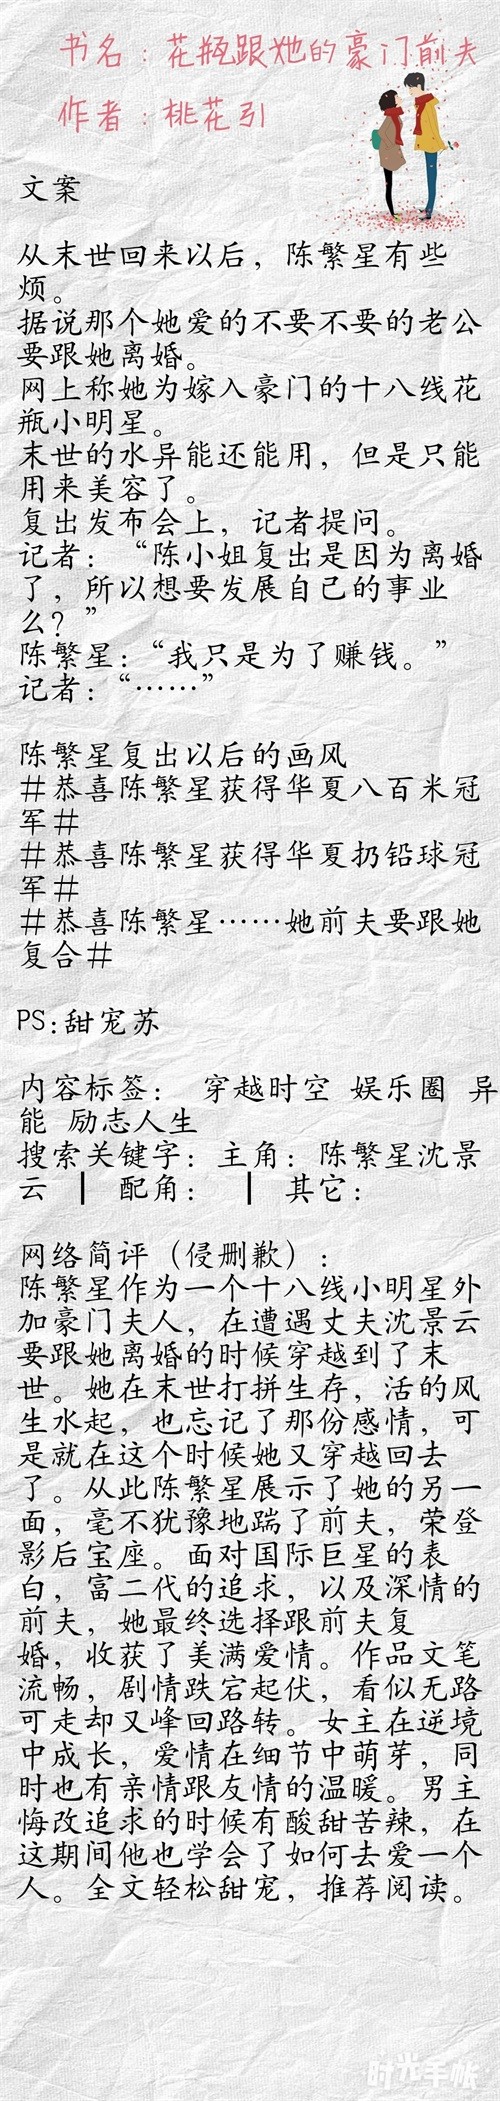 书名：花瓶跟她的豪门前夫
作者：桃花引
文案
从末世回来以后，陈繁星有些
烦。
据说那个她爱的不要不要的老公
要跟她离婚。
网上称她为嫁入豪门的十八线花
瓶小明星。
末世的水异能还能用，但是只能
用来美容了。
复出发布会上，记者提问。
记者：“陈小姐复出是因为离婚
了，所以想要发展自己的事业
么？”
陈繁星：“我只是为了赚钱。”
记者：“……”
陈繁星复出以后的画风
＃恭喜陈繁星获得华夏八百米冠
军＃
＃恭喜陈繁星获得华夏扔铅球冠
军＃
＃恭喜陈繁星……她前夫要跟她
复合＃
PS:甜宠苏
内容标签： 穿越时空 娱乐圈 异
能 励志人生
搜索关键字：主角：陈繁星沈景
云 ┃ 配角： ┃ 其它：
网络简评（侵删歉）：
陈繁星作为一个十八线小明星外
加豪门夫人，在遭遇丈夫沈景云
要跟她离婚的时候穿越到了末
世。她在末世打拼生存，活的风
生水起，也忘记了那份感情，可
是就在这个时候她又穿越回去
了。从此陈繁星展示了她的另一
面，毫不犹豫地踹了前夫，荣登
影后宝座。面对国际巨星的表
白，富二代的追求，以及深情的
前夫，她最终选择跟前夫复
婚，收获了美满爱情。作品文笔
流畅，剧情跌宕起伏，看似无路
可走却又峰回路转。女主在逆境
中成长，爱情在细节中萌芽，同
时也有亲情跟友情的温暖。男主
悔改追求的时候有酸甜苦辣，在
这期间他也学会了如何去爱一个
人。全文轻松甜宠，推荐阅读。
时光手帐